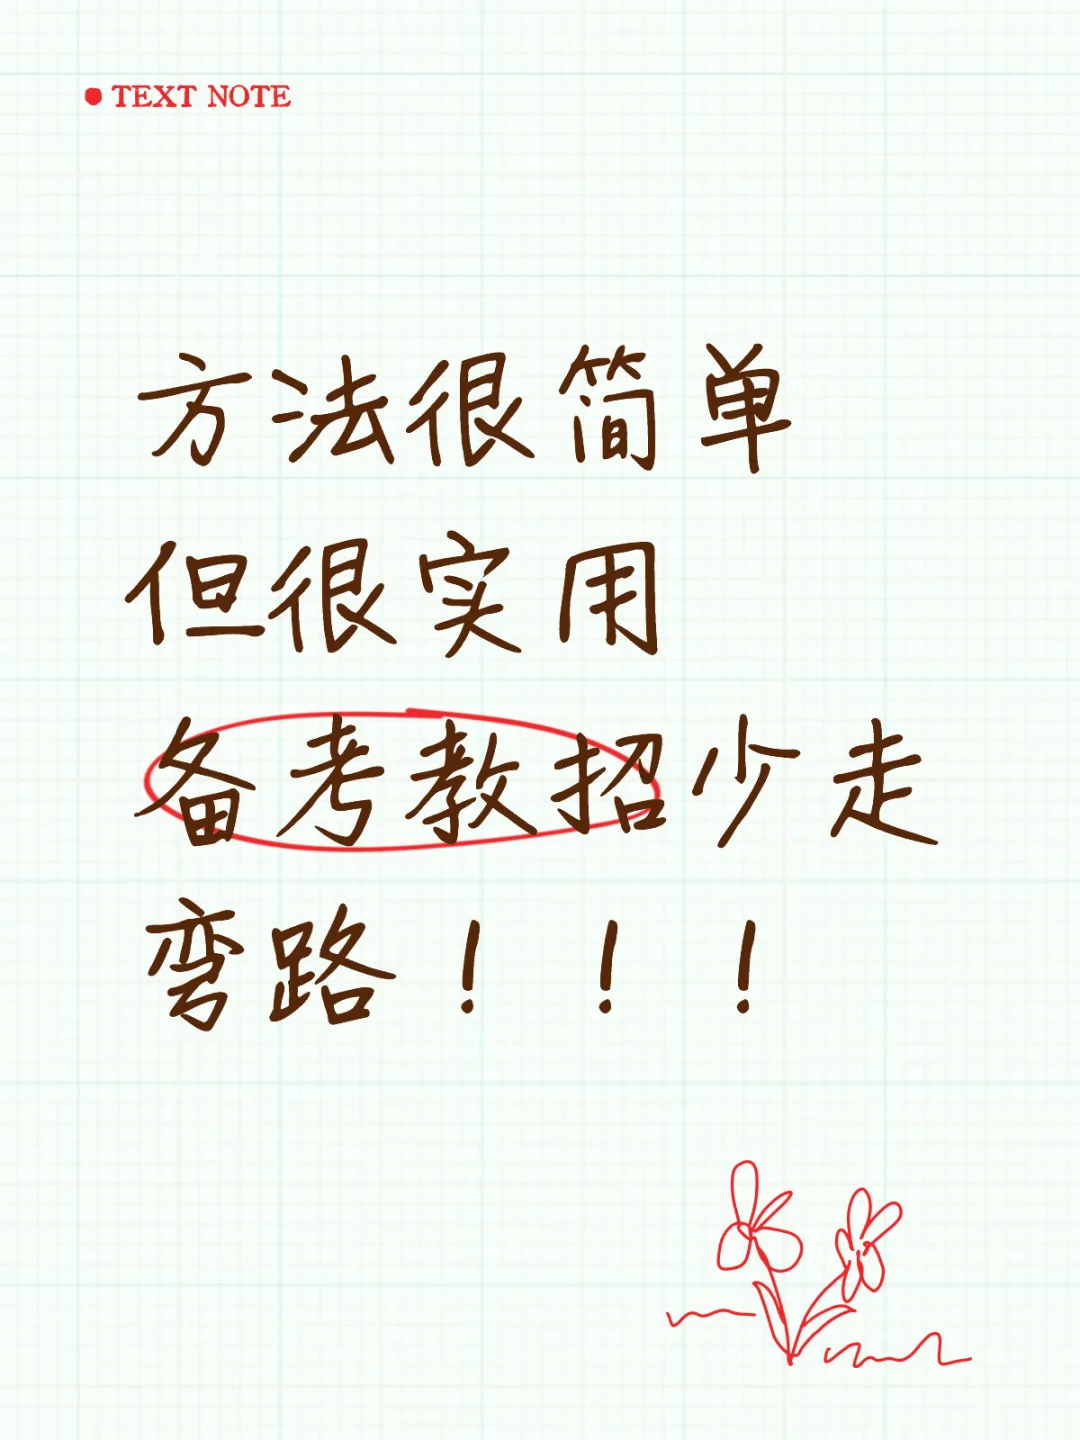 TEXT NOTE
方法很简单
但很实用
备考教招少走
弯路！！！